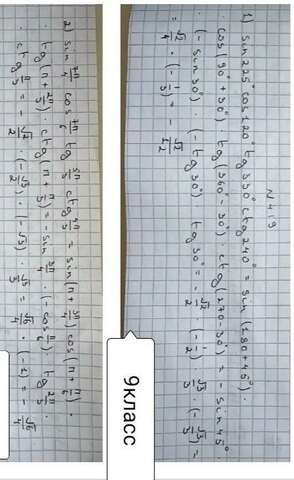 N 419
1) sin 225° cos 120° tg 330° ctg 240° = sin (180 + 45°) ·
· cos (90° + 30°) · tg (360° - 30°) · ctg (270 - 30°) = - sin 45° ·
(- sin 30°) · (- tg 30°) tg 30° = - √2/2 · (- 1/2) √3/3 · (- √3/3) =
= √2/4 · (- 1/3) = - √2/12
2) sin 7π/4 cos 7π/6 tg 5π/3 ctg 4π/3 = sin (π + 3π/4) cos (π + π/6) ·
· tg (π + 2π/3) · ctg (π + π/3) = - sin 3π/4 · (- cos π/6) · tg 2π/3 ·
· ctg π/3 = - √2/2 · (- √3/2) · (- √3) · √3/3 = √6/4 · (- 1) = - √6/4
9класс